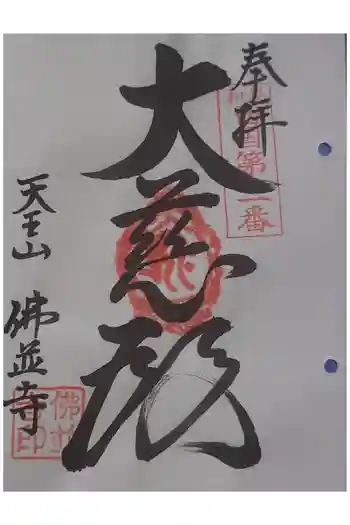 奉拝
第二番
大慈殿
天王山
佛並寺
佛並寺印